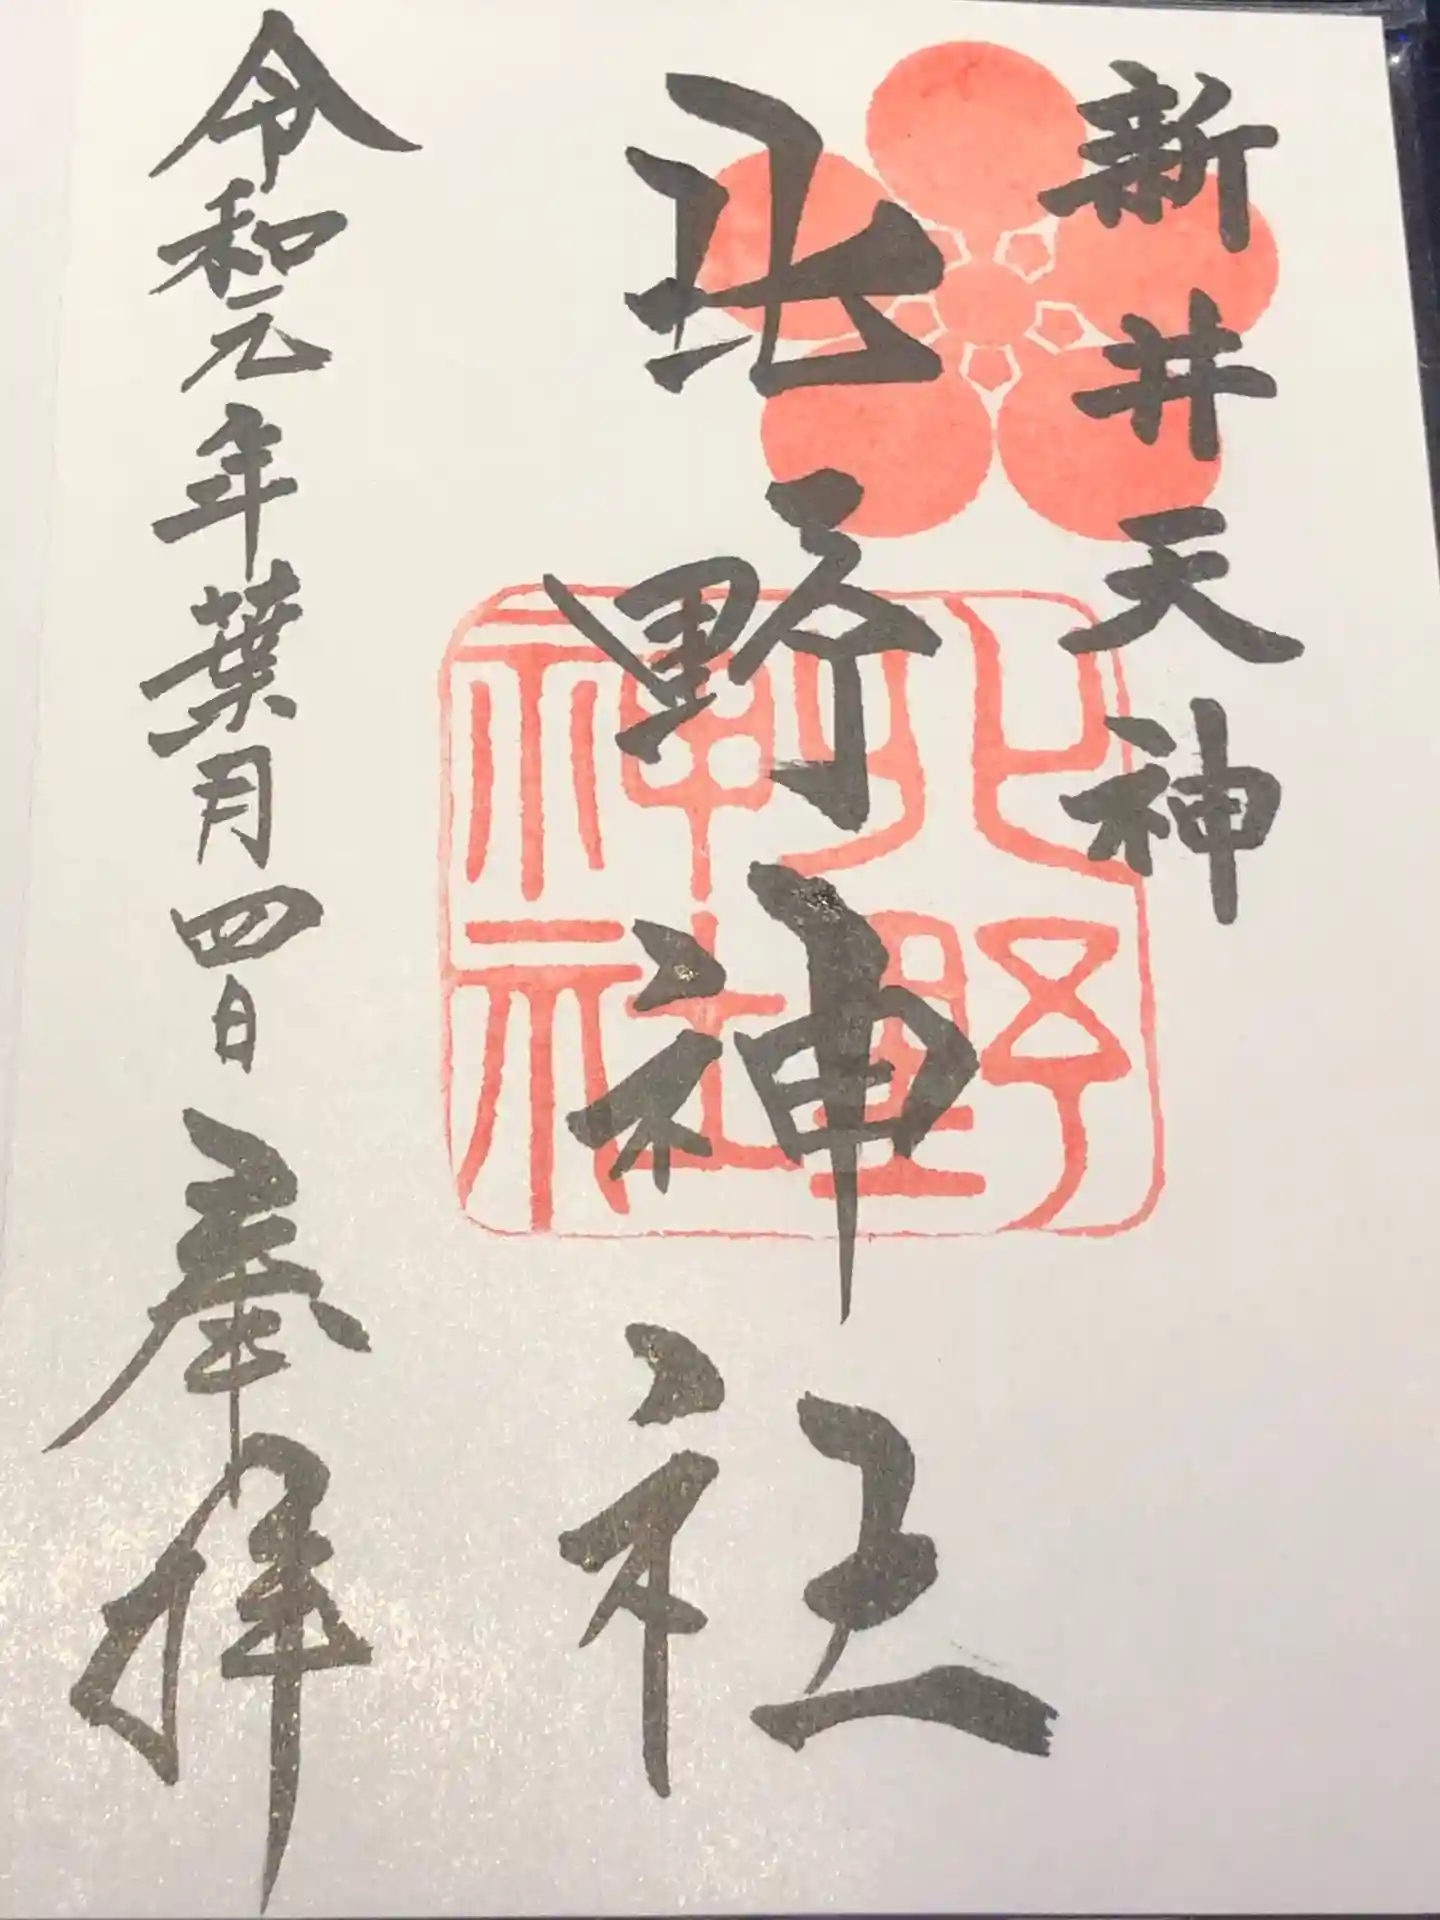 新井天神
北野神社
北野神社
令和元年葉月四日 奉拝